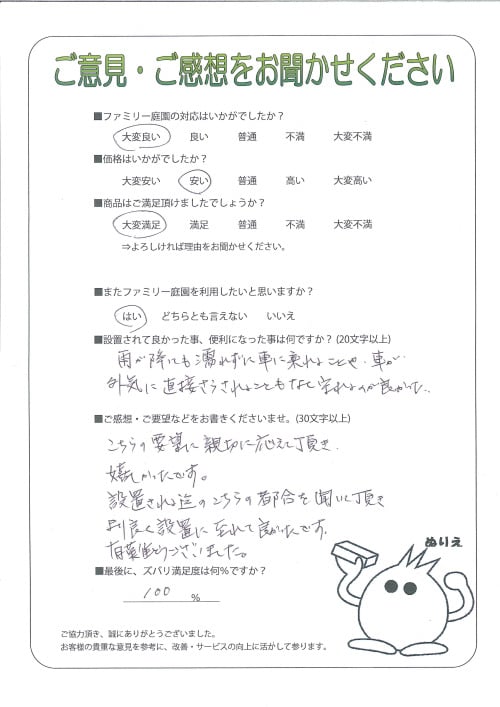 ご意見・ご感想をお聞かせください
■ファミリー庭園の対応はいかがでしたか？
大変良い 良い 普通 不満 大変不満
■価格はいかがでしたか？
大変安い 安い 普通 高い 大変高い
■商品はご満足頂けましたでしょうか？
大変満足 満足 普通 不満 大変不満
⇒よろしければ理由をお聞かせください。
■またファミリー庭園を利用したいと思いますか？
はい どちらとも言えない いいえ
■設置されて良かった事、便利になった事は何ですか？(20文字以上)
雨が降っても濡れずに車に乗れることや、車が
外気に直接さらされることもなく
■ご感想・ご要望などをお書きくださいませ。(30文字以上)
こちらの要望に親切に応えて頂き
嬉しかったです。
設置される迄のこちらの都合を聞いて頂き
良く設置に 良かったです。
ございました。
■最後に、ズバリ満足度は何%ですか？
100 %
ぬりえ
ご協力頂き、誠にありがとうございました。
お客様の貴重な意見を参考に、改善・サービスの向上に活かして参ります。